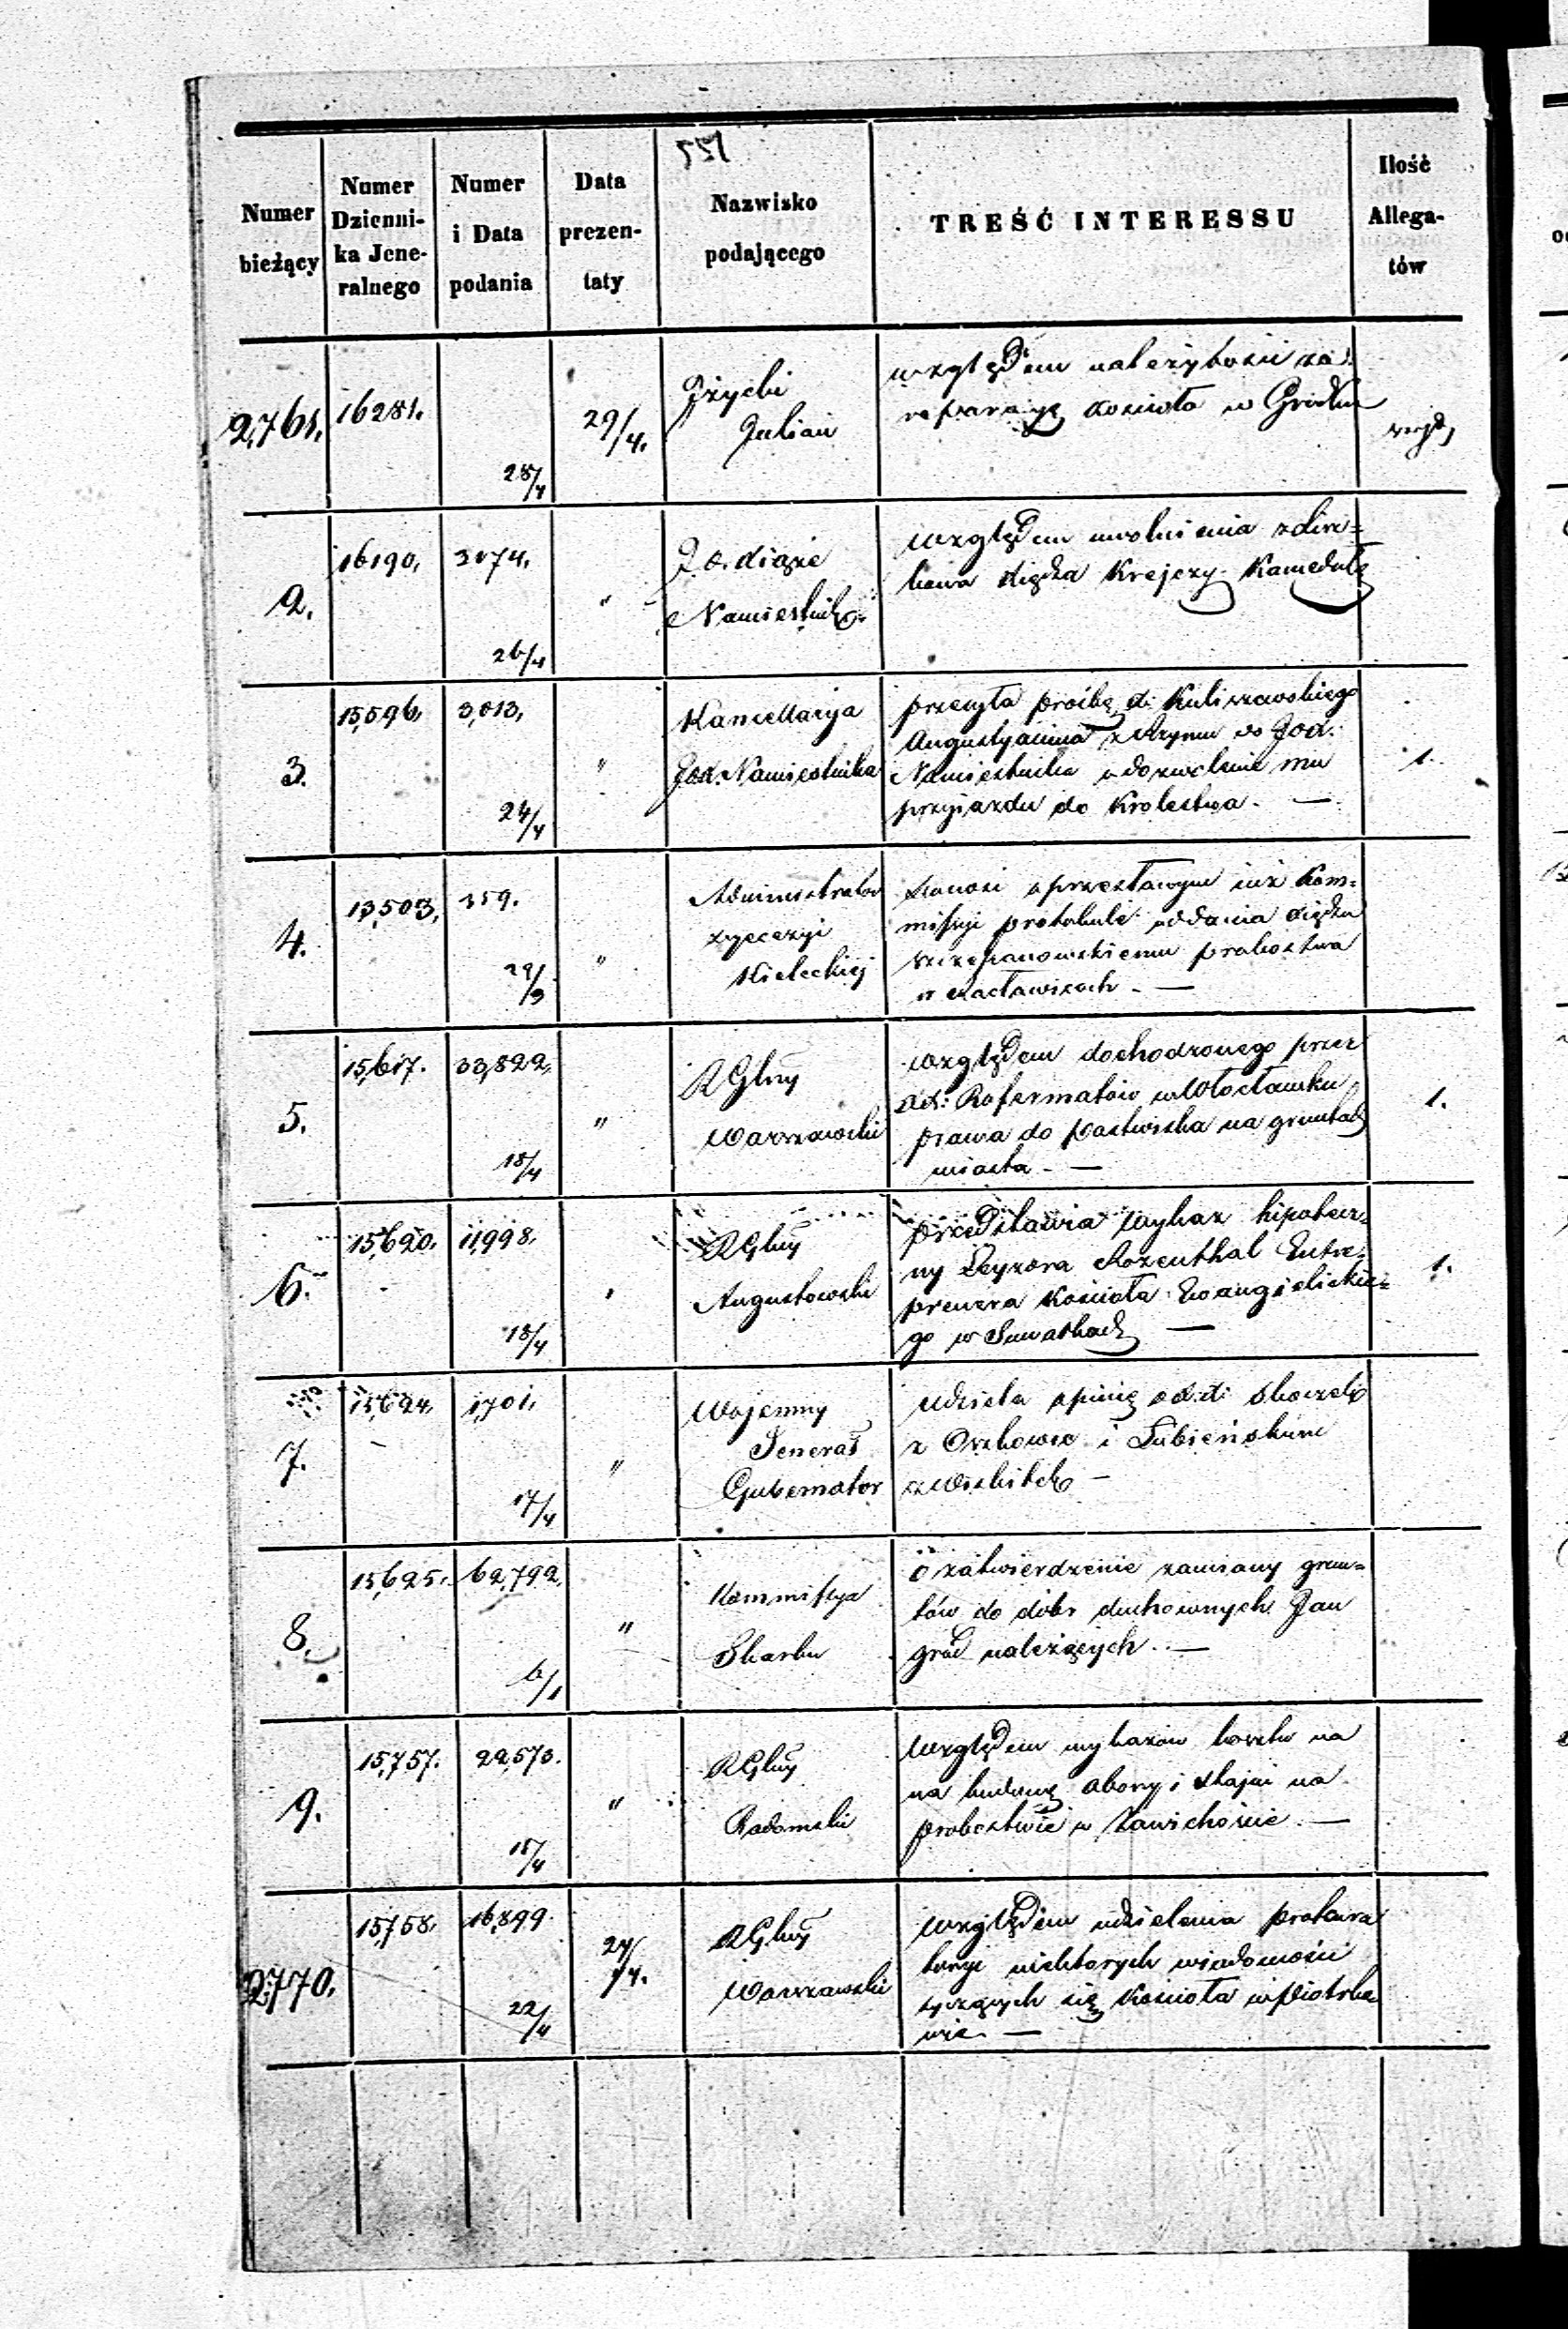 Numer bieżący
Numer Dzienni-ka Jene-ralnego
Numer i Data podania
Data prezen-taty
Nazwisko podającego
TREŚĆ INTERESSU
Ilość Allega-tów
2,761. 16281. 28/4 29/4. Julian
względem należytości za
reparacyę kościoła w
2. 16190. 3074. 26/4 " J. O. Xiąże Namiestnik
względem uwolnienia
księdza Krejczy Kamedułę
3. 15,596. 3,013. 24/4 " Kancellaryja JOX. Namiestnika
przesyła prośbę X. Kuliszewskiego
Augustyanina z Rzymu do JOX.
Namiestnika o dozwolenie mu
przyjazdu do Krolestwa. — 1.
4. 13,503. 359. 29/3 " Administrator Dyecezyi Kieleckiej
donosi o przesłanym już Kom=
missyi protokule oddania księdzu
Szczepanowskiemu probostwa
w Racławicach. —
5. 15,617. 33,822. 18/4 " RGlny Warszawski
względem dochodzonego przez
XX: Reformatów w Włocławku
prawa do pastwiska na gruntach
miasta. — 1.
6. 15,620. 11,998. 18/4 " RGlny Augustowski
przedstawia wykaz hipotecz=
ny Leyzora Rozenthal Entre=
prenera Kościoła Ewangielickie=
go w Suwałkach — 1.
7. 15,624. 1,701. 17/4 " Wojenny Jenerał Gubernator
udziela opinię o XX:
i Łubieńskim
z Wiskitek —
8. 15,625. 62,792. 6/1 " Kommissya Skarbu
o zatwierdzenie zamiany grun=
tów do dóbr duchownych Jan
gród należących. —
9. 15,757. 22,573. 18/4 " RGlny Radomski
względem wykazów koszt na
na budowę obory i stajni na
probostwie w Zawichoście. —
2770. 15,758. 16,899. 22/4 24/4. RGlny Warszawski
względem udzielenia prokura
toryi niektorych wiadomości
tyczących się Kościoła w Piotrko
wie. —